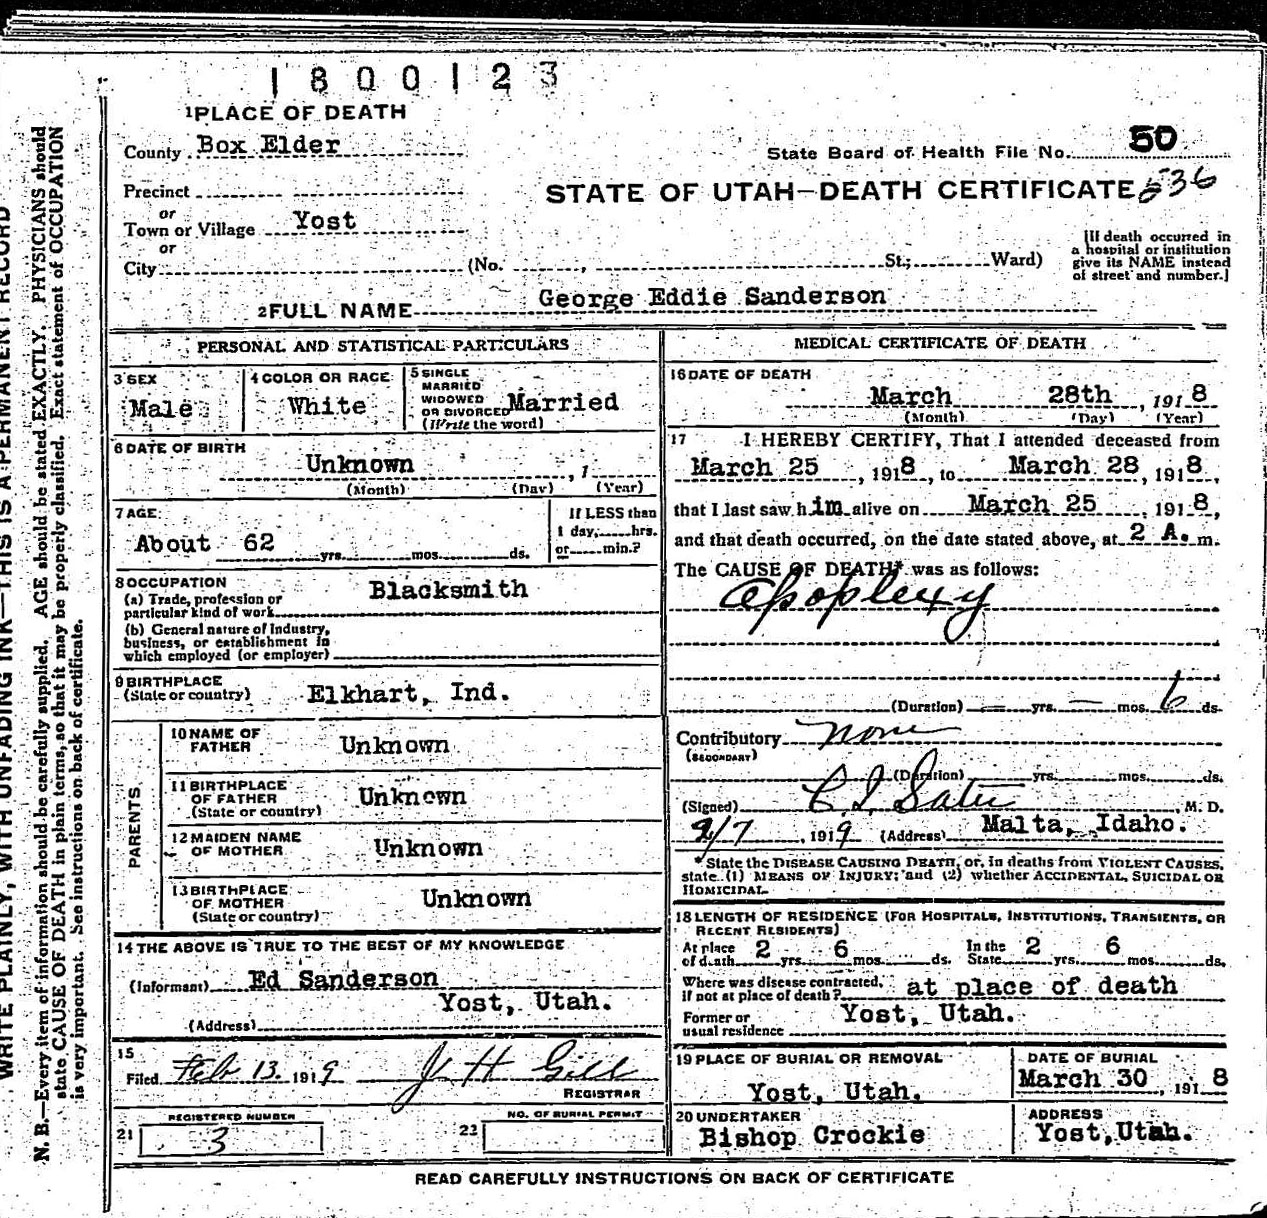 1800123
1 PLACE OF DEATH
County Box Elder
State Board of Health File No. 50
Precinct
STATE OF UTAH—DEATH CERTIFICATE 536
or
Town or Village Yost
or
City (No. , St.; Ward)
[If death occurred in
a hospital or institution
give its NAME instead
of street and number.]
2 FULL NAME George Eddie Sanderson
PERSONAL AND STATISTICAL PARTICULARS
3 SEX
Male
4 COLOR OR RACE
White
5 SINGLE
MARRIED
WIDOWED
OR DIVORCED Married
(Write the word)
6 DATE OF BIRTH
Unknown , 1
(Month) (Day) (Year)
7 AGE
About 62 yrs. mos. ds.
If LESS than
1 day, hrs.
or min.?
8 OCCUPATION
(a) Trade, profession or
particular kind of work Blacksmith
(b) General nature of Industry,
business, or establishment in
which employed (or employer)
9 BIRTHPLACE
(State or country) Elkhart, Ind.
PARENTS
10 NAME OF
FATHER Unknown
11 BIRTHPLACE
OF FATHER
(State or country) Unknown
12 MAIDEN NAME
OF MOTHER Unknown
13 BIRTHPLACE
OF MOTHER
(State or country) Unknown
14 THE ABOVE IS TRUE TO THE BEST OF MY KNOWLEDGE
(Informant) Ed Sanderson
Yost, Utah.
(Address)
15
Filed Feb 13. 1919 J H Gill
REGISTRAR
REGISTERED NUMBER
21 3
NO. OF BURIAL PERMIT
22
MEDICAL CERTIFICATE OF DEATH
16 DATE OF DEATH
March 28th , 1918
(Month) (Day) (Year)
17 I HEREBY CERTIFY, That I attended deceased from
March 25 , 1918, to March 28 , 1918,
that I last saw him alive on March 25 , 1918,
and that death occurred, on the date stated above, at 2 A. m.
The CAUSE OF DEATH* was as follows:
Apoplexy
(Duration) — yrs. — mos. 6 ds.
Contributory none
(SECONDARY)
(Duration) yrs. mos. ds.
(Signed) M. D.
, 1919 (Address) Malta, Idaho.
*State the DISEASE CAUSING DEATH, or, in deaths from VIOLENT CAUSES,
state (1) MEANS OF INJURY; and (2) whether ACCIDENTAL, SUICIDAL OR
HOMICIDAL.
18 LENGTH OF RESIDENCE (FOR HOSPITALS, INSTITUTIONS, TRANSIENTS, OR
RECENT RESIDENTS)
At place
of death 2 yrs. 6 mos. ds. In the
State 2 yrs. 6 mos. ds.
Where was disease contracted,
if not at place of death? at place of death
Former or
usual residence Yost, Utah.
19 PLACE OF BURIAL OR REMOVAL
Yost, Utah.
DATE OF BURIAL
March 30 , 1918
20 UNDERTAKER
Bishop Crockie
ADDRESS
Yost, Utah.
READ CAREFULLY INSTRUCTIONS ON BACK OF CERTIFICATE
WRITE PLAINLY, WITH UNFADING INK—THIS IS A PERMANENT RECORD
N. B.—Every item of information should be carefully supplied. AGE should be stated EXACTLY. PHYSICIANS should
state CAUSE OF DEATH in plain terms, so that it may be properly classified. Exact statement of OCCUPATION
is very important. See instructions on back of certificate.